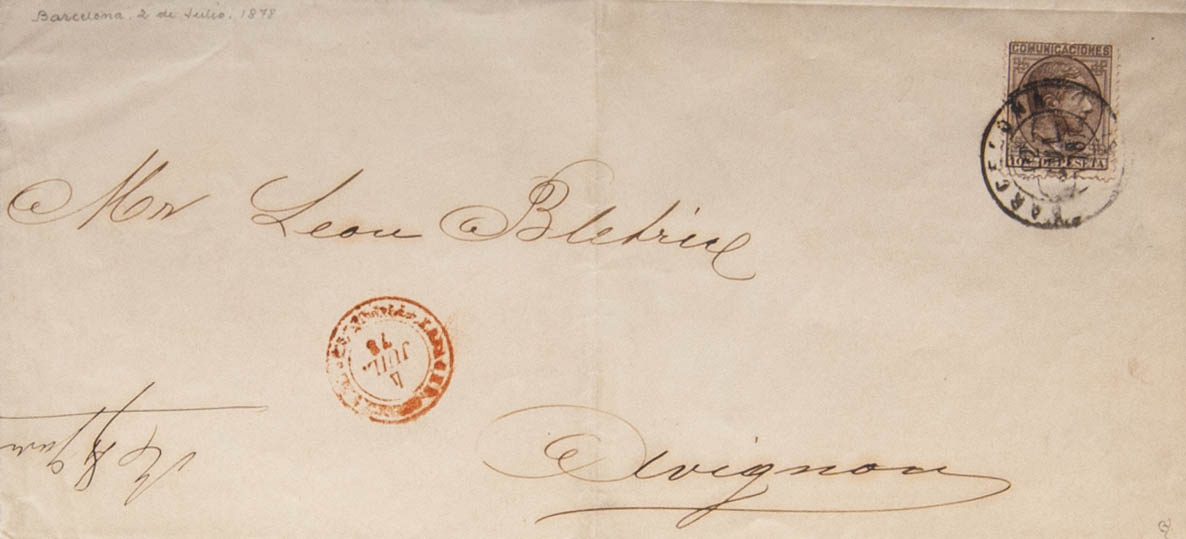 Barcelona. 2 de Julio. 1878
COMUNICACIONES
DE PESETA
BARCELONA
Mr Leon Bletrix
4
JUIL
78
Avignon